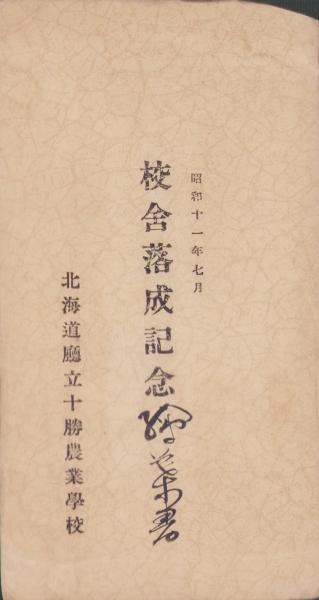 昭和十一年七月
校舍落成記念絵葉書
北海道廳立十勝農業學校